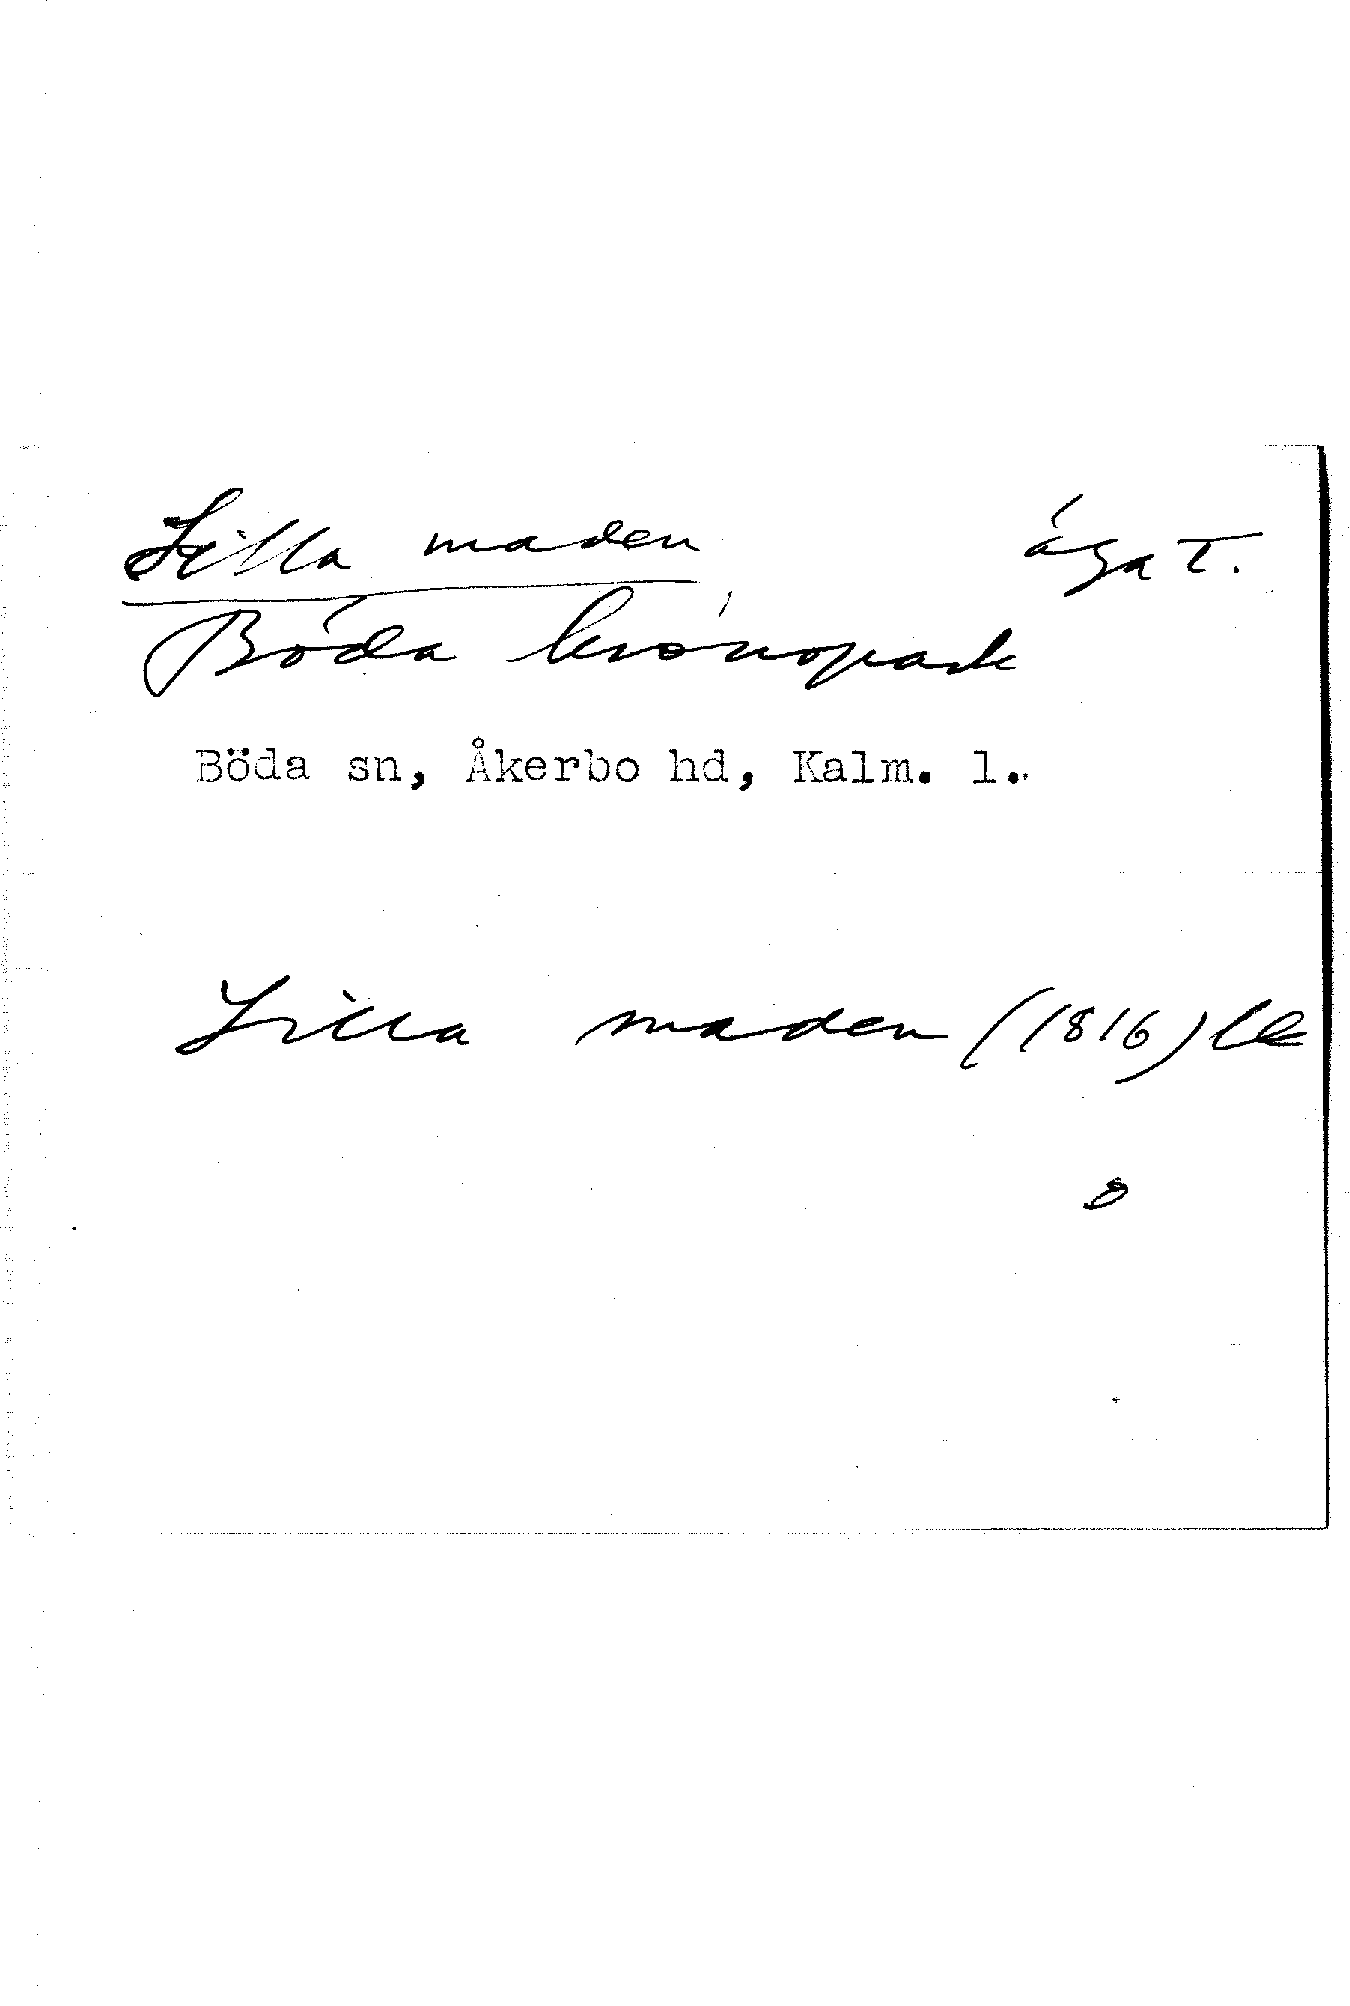 Lilla maden ägat.
Böda kronopark
Böda sn, Åkerbo hd, Kalm. l.
Lilla maden (1816) le